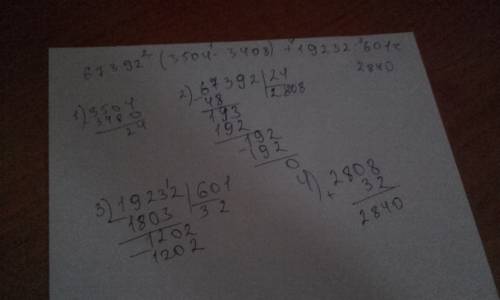 67392 : (3504 - 3408) + 19232 : 601 =
2840
1) 3504
3480
24
2) 67392 | 24
- 48 | 2808
193
192
192
- 192
0
3) 19232 | 601
- 1803 | 32
1202
- 1202
4) 2808
+ 32
2840